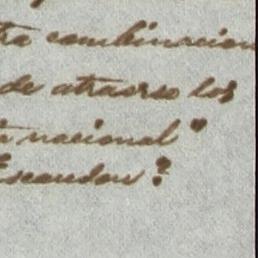 tra combinacion
de atraerse los
a nacional"
Escandon?